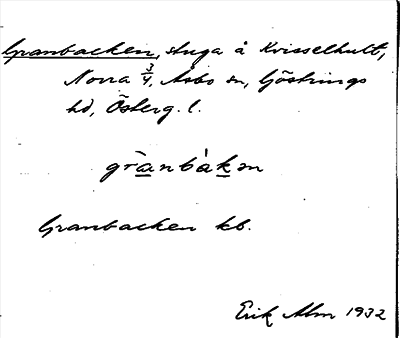 Granbacken, stuga å Kvisselhult,
Norra 3/4, Åsbo sn, Göstrings
hd, Österg. l.
grànbàkən
Granbacken kb.
Erik Alm 1932